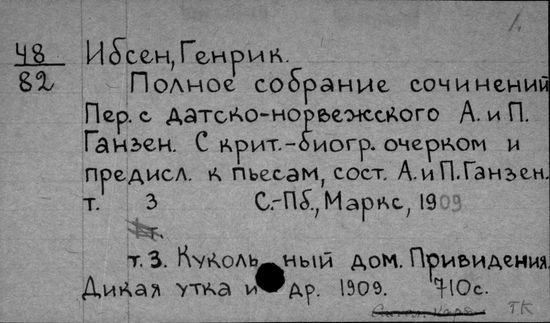 48
82
Ибсен, Генрик.
Полное собрание сочинений
Пер. с датско-норвежского А. и П.
Ганзен. С крит.-биогр. очерком и
предисл. к пьесам, сост. А. и П. Ганзен.
т. 3 С.-Пб., Маркс, 1909
т. 3. Куколь ный дом. Привидения.
Дикая утка и др. 1909. 710с.
ТК